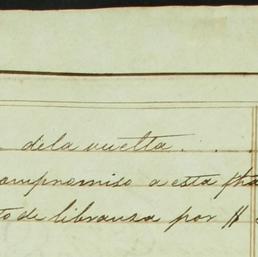 dela vuelta . . .
compromiso a esta fha
to de libranza por $